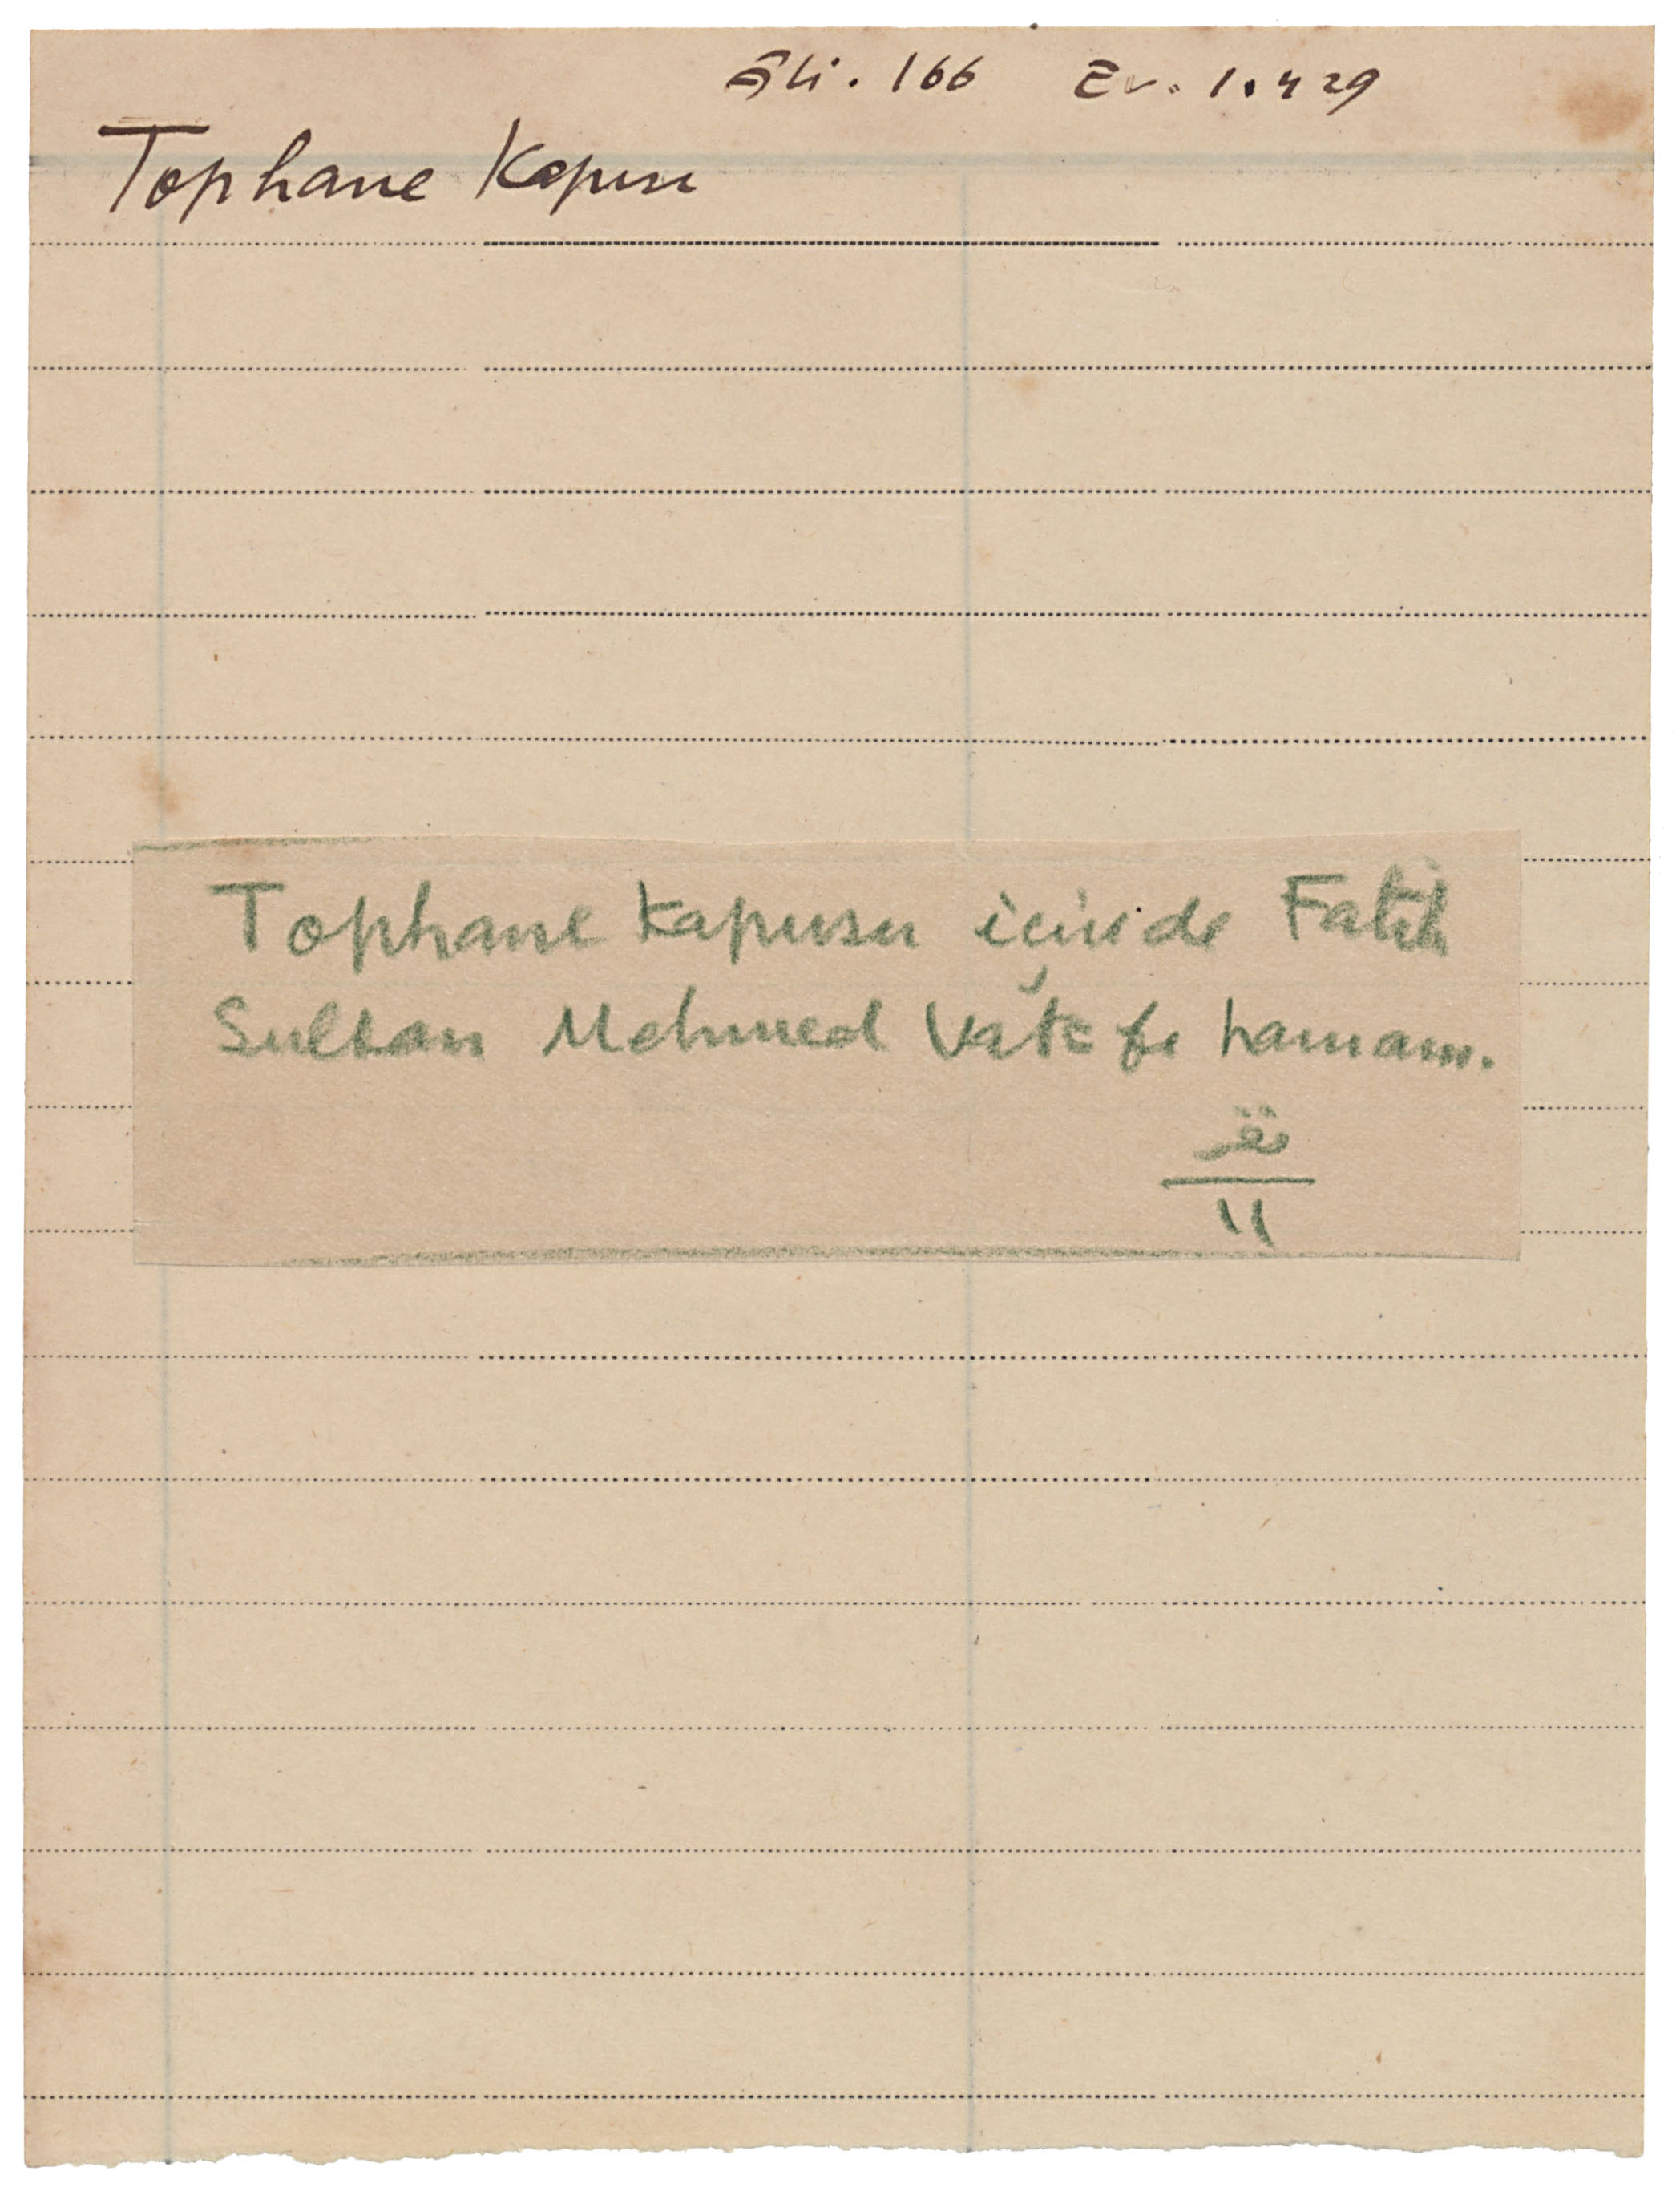 Âli. 166 Ev. 1.429
Tophane Kapusu
Tophane kapusu içinde Fatih
Sultan Mehmed Vakfı hamamı.
11